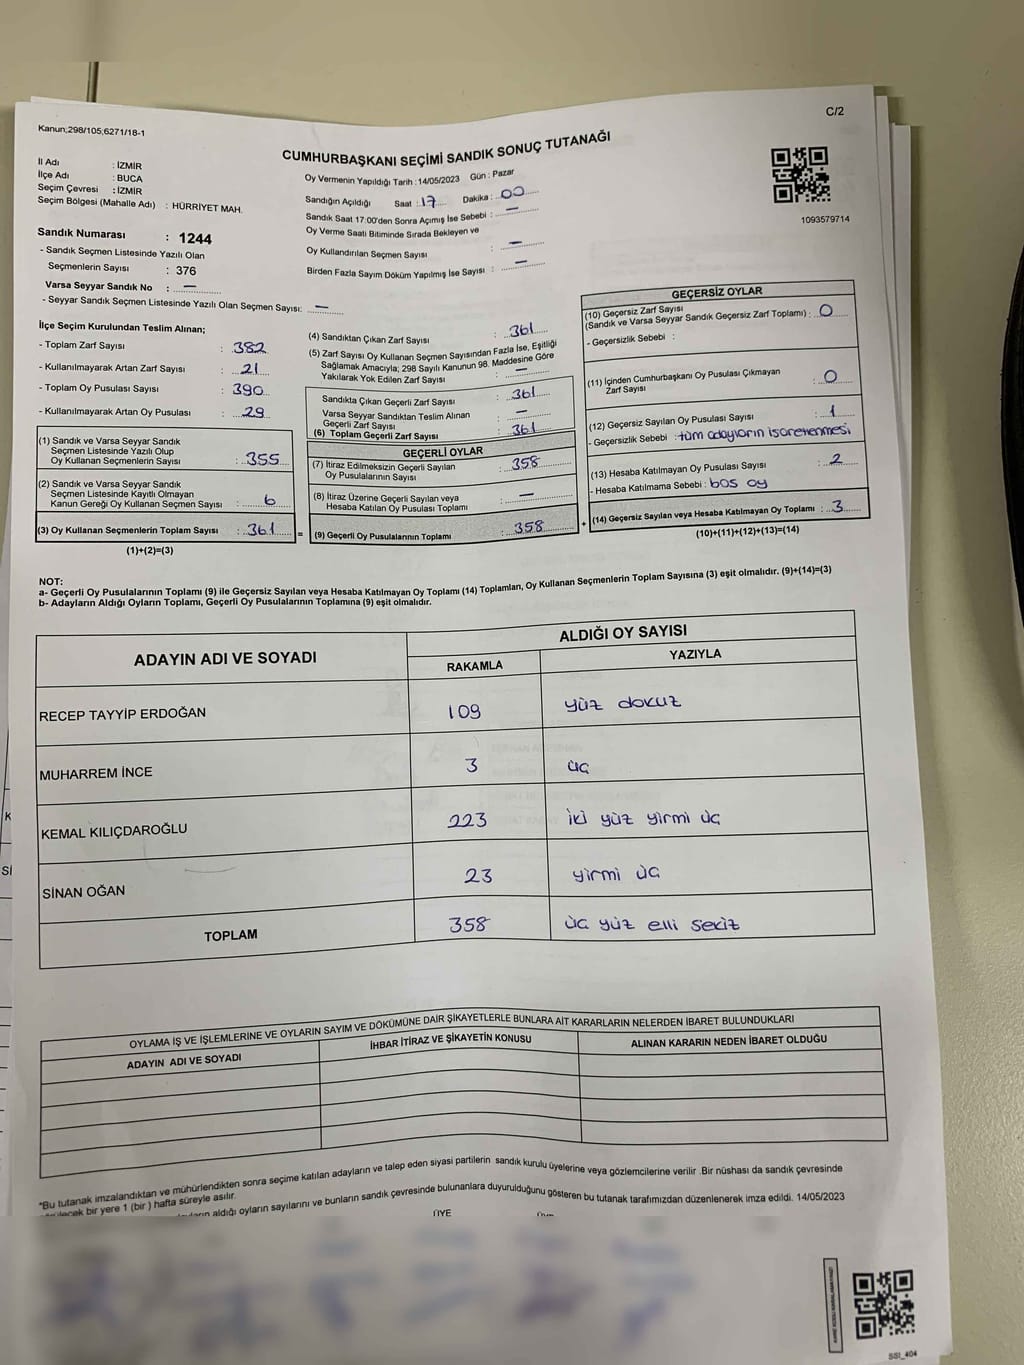 C/2
Kanun;298/105;6271/18-1
CUMHURBAŞKANI SEÇİMİ SANDIK SONUÇ TUTANAĞI
1093579714
İl Adı : İZMİR
İlçe Adı : BUCA
Seçim Çevresi : İZMİR
Seçim Bölgesi (Mahalle Adı) : HÜRRİYET MAH.
Oy Vermenin Yapıldığı Tarih : 14/05/2023 Gün : Pazar
Sandığın Açıldığı Saat : 17 Dakika : 00
Sandık Saat 17:00'den Sonra Açımış İse Sebebi : —
Oy Verme Saati Bitiminde Sırada Bekleyen ve
Oy Kullandırılan Seçmen Sayısı : —
Birden Fazla Sayım Döküm Yapılmış İse Sayısı : —
Sandık Numarası : 1244
- Sandık Seçmen Listesinde Yazılı Olan
Seçmenlerin Sayısı : 376
Varsa Seyyar Sandık No : —
- Seyyar Sandık Seçmen Listesinde Yazılı Olan Seçmen Sayısı: —
İlçe Seçim Kurulundan Teslim Alınan;
- Toplam Zarf Sayısı : 382
- Kullanılmayarak Artan Zarf Sayısı : 21
- Toplam Oy Pusulası Sayısı : 390
- Kullanılmayarak Artan Oy Pusulası : 29
(1) Sandık ve Varsa Seyyar Sandık
Seçmen Listesinde Yazılı Olup
Oy Kullanan Seçmenlerin Sayısı : 355
(2) Sandık ve Varsa Seyyar Sandık
Seçmen Listesinde Kayıtlı Olmayan
Kanun Gereği Oy Kullanan Seçmen Sayısı : 6
(3) Oy Kullanan Seçmenlerin Toplam Sayısı : 361 =
(1)+(2)=(3)
(4) Sandıktan Çıkan Zarf Sayısı : 361
(5) Zarf Sayısı Oy Kullanan Seçmen Sayısından Fazla İse, Eşitliği
Sağlamak Amacıyla; 298 Sayılı Kanunun 98. Maddesine Göre
Yakılarak Yok Edilen Zarf Sayısı : —
Sandıkta Çıkan Geçerli Zarf Sayısı : 361
Varsa Seyyar Sandıktan Teslim Alınan
Geçerli Zarf Sayısı : —
(6) Toplam Geçerli Zarf Sayısı : 361
GEÇERLİ OYLAR
(7) İtiraz Edilmeksizin Geçerli Sayılan
Oy Pusulalarının Sayısı : 358
(8) İtiraz Üzerine Geçerli Sayılan veya
Hesaba Katılan Oy Pusulası Toplamı : —
(9) Geçerli Oy Pusulalarının Toplamı : 358 +
GEÇERSİZ OYLAR
(10) Geçersiz Zarf Sayısı
(Sandık ve Varsa Seyyar Sandık Geçersiz Zarf Toplamı) : 0
- Geçersizlik Sebebi :
(11) İçinden Cumhurbaşkanı Oy Pusulası Çıkmayan
Zarf Sayısı : 0
(12) Geçersiz Sayılan Oy Pusulası Sayısı : 1
- Geçersizlik Sebebi : tüm adayların işaretlenmesi
(13) Hesaba Katılmayan Oy Pusulası Sayısı : 2
- Hesaba Katılmama Sebebi : boş oy
(14) Geçersiz Sayılan veya Hesaba Katılmayan Oy Toplamı : 3
(10)+(11)+(12)+(13)=(14)
NOT:
a- Geçerli Oy Pusulalarının Toplamı (9) ile Geçersiz Sayılan veya Hesaba Katılmayan Oy Toplamı (14) Toplamları, Oy Kullanan Seçmenlerin Toplam Sayısına (3) eşit olmalıdır. (9)+(14)=(3)
b- Adayların Aldığı Oyların Toplamı, Geçerli Oy Pusulalarının Toplamına (9) eşit olmalıdır.
ADAYIN ADI VE SOYADI
ALDIĞI OY SAYISI
RAKAMLA YAZIYLA
RECEP TAYYİP ERDOĞAN 109 yüz dokuz
MUHARREM İNCE 3 üç
KEMAL KILIÇDAROĞLU 223 iki yüz yirmi üç
SİNAN OĞAN 23 yirmi üç
TOPLAM 358 üç yüz elli sekiz
OYLAMA İŞ VE İŞLEMLERİNE VE OYLARIN SAYIM VE DÖKÜMÜNE DAİR ŞİKAYETLERLE BUNLARA AİT KARARLARIN NELERDEN İBARET BULUNDUKLARI
ADAYIN ADI VE SOYADI İHBAR İTİRAZ VE ŞİKAYETİN KONUSU ALINAN KARARIN NEDEN İBARET OLDUĞU
*Bu tutanak imzalandıktan ve mühürlendikten sonra seçime katılan adayların ve talep eden siyasi partilerin sandık kurulu üyelerine veya gözlemcilerine verilir .Bir nüshası da sandık çevresinde
bir yere 1 (bir ) hafta süreyle asılır.
aldığı oyların sayılarını ve bunların sandık çevresinde bulunanlara duyurulduğunu gösteren bu tutanak tarafımızdan düzenlenerek imza edildi. 14/05/2023
ÜYE
SSI_404